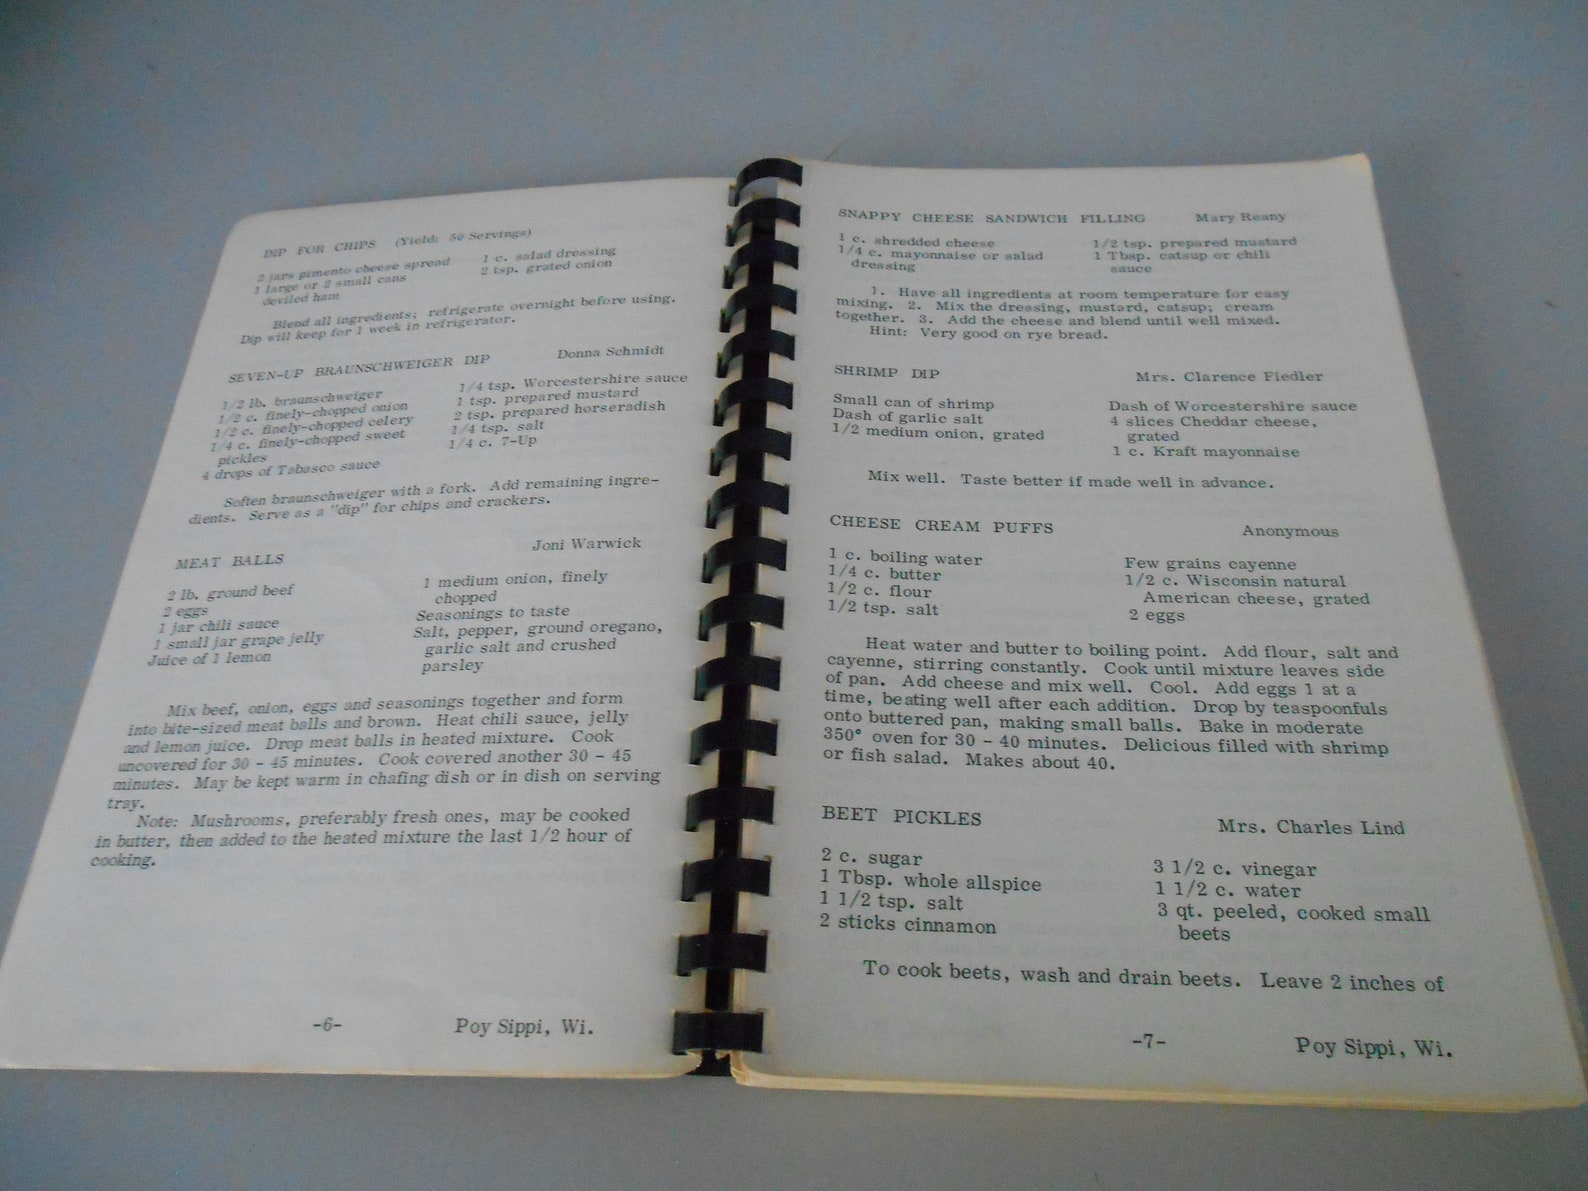 DIP FOR CHIPS (Yield: 50 Servings)
2 jars pimento cheese spread
1 large or 2 small cans
deviled ham
1 c. salad dressing
2 tsp. grated onion
Blend all ingredients; refrigerate overnight before using.
Dip will keep for 1 week in refrigerator.
SEVEN-UP BRAUNSCHWEIGER DIP Donna Schmidt
1/2 lb. braunschweiger
1/2 c. finely-chopped onion
1/2 c. finely-chopped celery
1/4 c. finely-chopped sweet
pickles
4 drops of Tabasco sauce
1/4 tsp. Worcestershire sauce
1 tsp. prepared mustard
2 tsp. prepared horseradish
1/4 tsp. salt
1/4 c. 7-Up
Soften braunschweiger with a fork. Add remaining ingre-
dients. Serve as a "dip" for chips and crackers.
MEAT BALLS Joni Warwick
2 lb. ground beef
2 eggs
1 jar chili sauce
1 small jar grape jelly
Juice of 1 lemon
1 medium onion, finely
chopped
Seasonings to taste
Salt, pepper, ground oregano,
garlic salt and crushed
parsley
Mix beef, onion, eggs and seasonings together and form
into bite-sized meat balls and brown. Heat chili sauce, jelly
and lemon juice. Drop meat balls in heated mixture. Cook
uncovered for 30 - 45 minutes. Cook covered another 30 - 45
minutes. May be kept warm in chafing dish or in dish on serving
tray.
Note: Mushrooms, preferably fresh ones, may be cooked
in butter, then added to the heated mixture the last 1/2 hour of
cooking.
-6- Poy Sippi, Wi.
SNAPPY CHEESE SANDWICH FILLING Mary Reany
1 c. shredded cheese
1/4 c. mayonnaise or salad
dressing
1/2 tsp. prepared mustard
1 Tbsp. catsup or chili
sauce
1. Have all ingredients at room temperature for easy
mixing. 2. Mix the dressing, mustard, catsup; cream
together. 3. Add the cheese and blend until well mixed.
Hint: Very good on rye bread.
SHRIMP DIP Mrs. Clarence Fiedler
Small can of shrimp
Dash of garlic salt
1/2 medium onion, grated
Dash of Worcestershire sauce
4 slices Cheddar cheese,
grated
1 c. Kraft mayonnaise
Mix well. Taste better if made well in advance.
CHEESE CREAM PUFFS Anonymous
1 c. boiling water
1/4 c. butter
1/2 c. flour
1/2 tsp. salt
Few grains cayenne
1/2 c. Wisconsin natural
American cheese, grated
2 eggs
Heat water and butter to boiling point. Add flour, salt and
cayenne, stirring constantly. Cook until mixture leaves side
of pan. Add cheese and mix well. Cool. Add eggs 1 at a
time, beating well after each addition. Drop by teaspoonfuls
onto buttered pan, making small balls. Bake in moderate
350° oven for 30 - 40 minutes. Delicious filled with shrimp
or fish salad. Makes about 40.
BEET PICKLES Mrs. Charles Lind
2 c. sugar
1 Tbsp. whole allspice
1 1/2 tsp. salt
2 sticks cinnamon
3 1/2 c. vinegar
1 1/2 c. water
3 qt. peeled, cooked small
beets
To cook beets, wash and drain beets. Leave 2 inches of
-7- Poy Sippi, Wi.